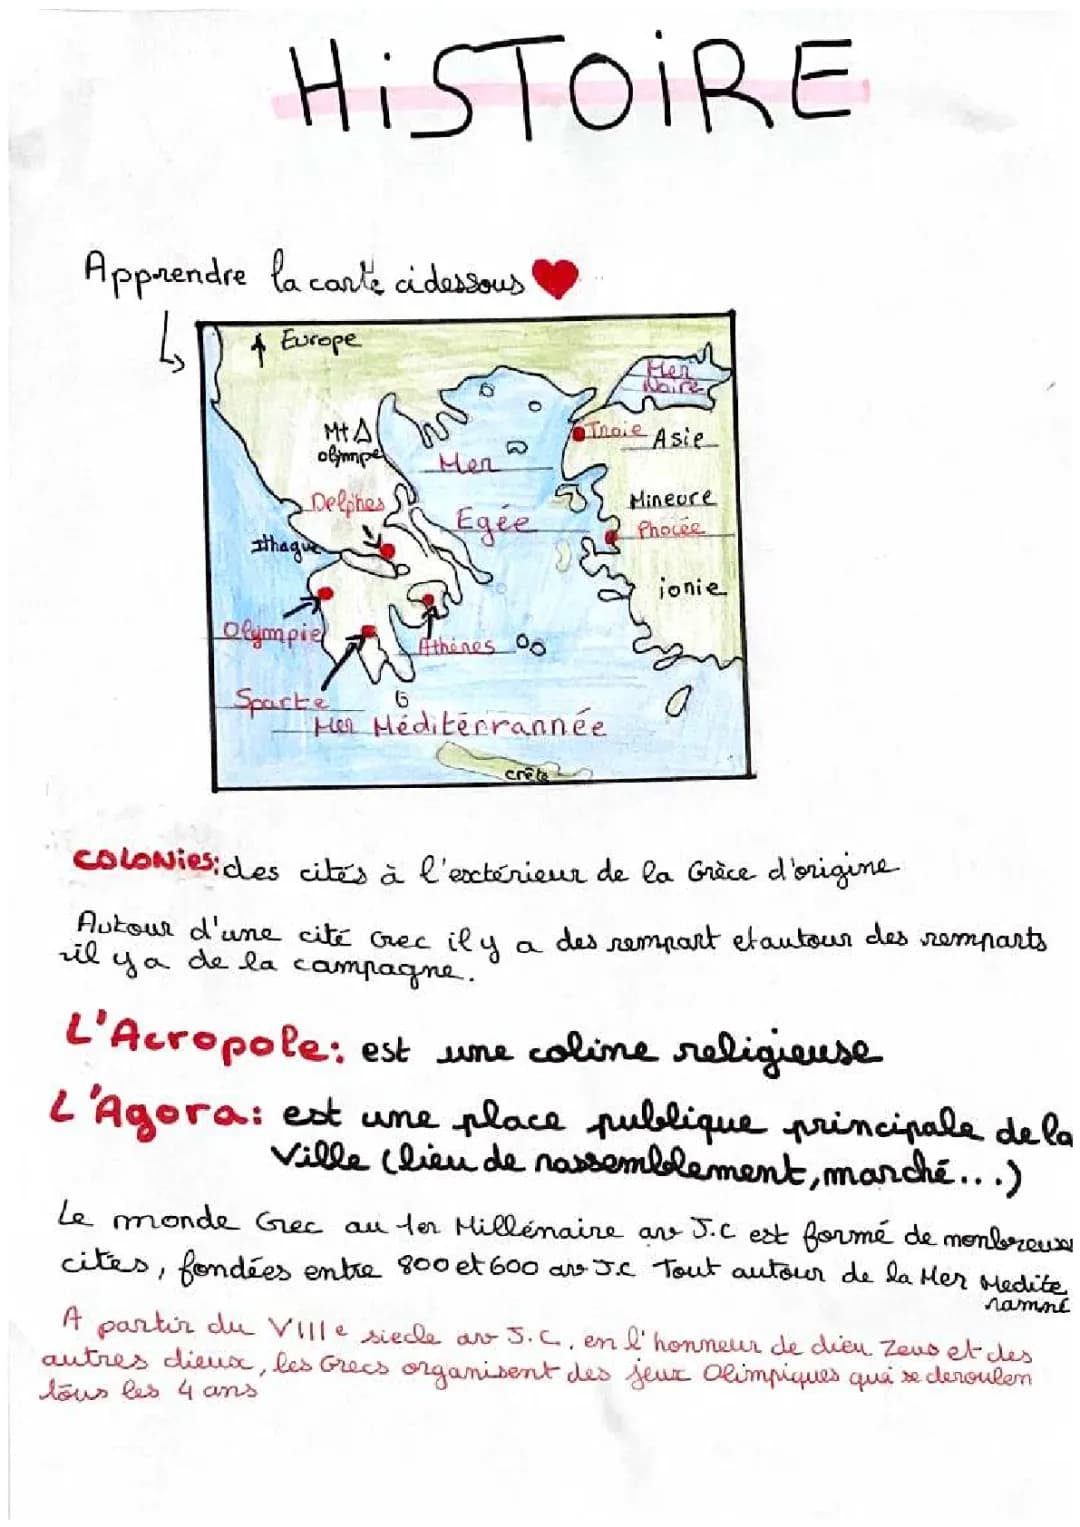 HiSTOiRE
Apprendre la carte cidessous
Europe
Mer
Noire
Mt
olympe
Troie
Asie
Mer
Delphes
Mineure
Egée
Phocée
Ithaque
ionie
Olympie
Athènes
Sparte
Mer Méditérrannée
crête
COLONies: des cités à l'extérieur de la Grèce d'origine
Autour d'une cité Grec il y a des rempart et autour des remparts
il y a de la campagne.
L'Acropole: est une coline religieuse
L'Agora: est une place publique principale de la
Ville (lieu de rassemblement, marché...)
Le monde Grec au 1er Millénaire av J.C est formé de monbreuses
cites, fondées entre 800 et 600 av J.C Tout autour de la Mer Medite
ramné
A partir du VIIIe siecle av J.C, en l'honneur de dieu Zeus et des
autres dieux, les Grecs organisent des jeux Olimpiques qui se deroulem
tous les 4 ans